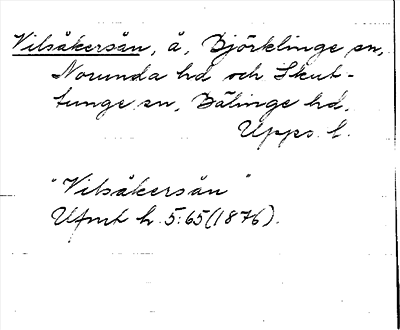 Vilsåkersån, å, Björklinge sn,
Norunda hd och Skut-
tunge sn, Bälinge hd,
Upps. l.
"Vilsåkersån"
Ufmt h. 5:65 (1876).